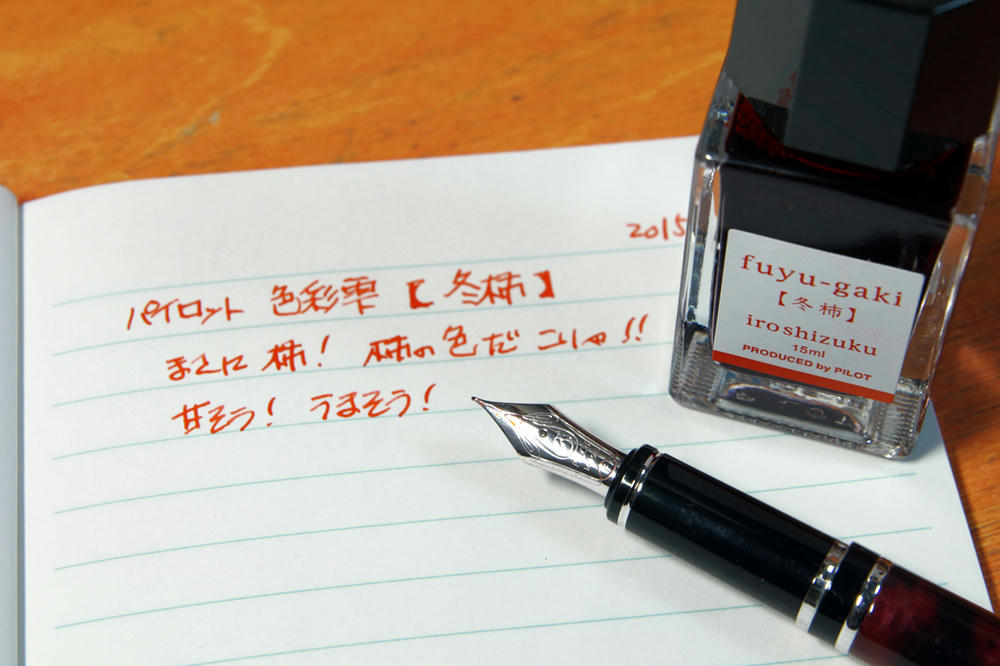 2015
パイロット 色彩雫【冬柿】
まさに柿! 柿の色だ こしゃ!!
甘そう! うまそう!
fuyu-gaki
【冬柿】
iroshizuku
15ml
PRODUCED by PILOT